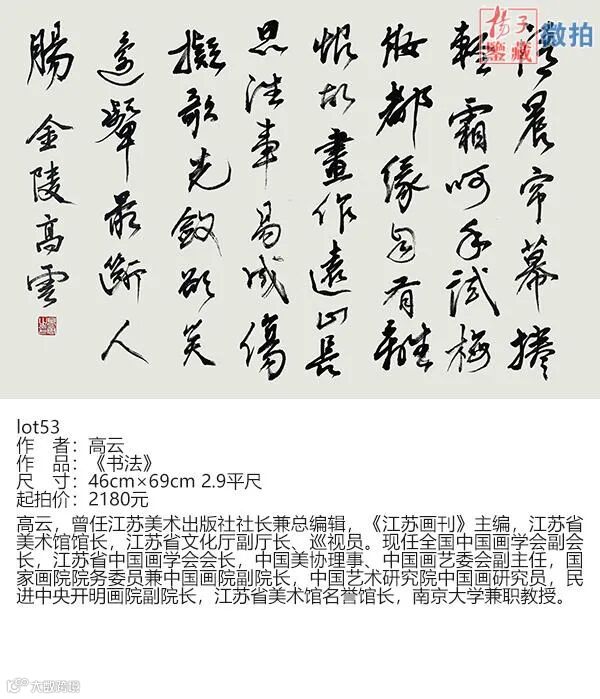 清晨帘幕捲
輕霜呵手試梅
妝都緣自有離
恨故畫作遠山長
思往事易成傷
擬歌先斂欲笑
還顰最斷人
腸 金陵高雲
揚子
鑒藏
微拍
lot53
作 者：高云
作 品：《书法》
尺 寸：46cm×69cm 2.9平尺
起拍价：2180元
高云，曾任江苏美术出版社社长兼总编辑，《江苏画刊》主编，江苏省
美术馆馆长，江苏省文化厅副厅长、巡视员。现任全国中国画学会副会
长，江苏省中国画学会会长，中国美协理事、中国画艺委会副主任，国
家画院院务委员兼中国画院副院长，中国艺术研究院中国画研究员，民
进中央开明画院副院长，江苏省美术馆名誉馆长，南京大学兼职教授。
大数跨境